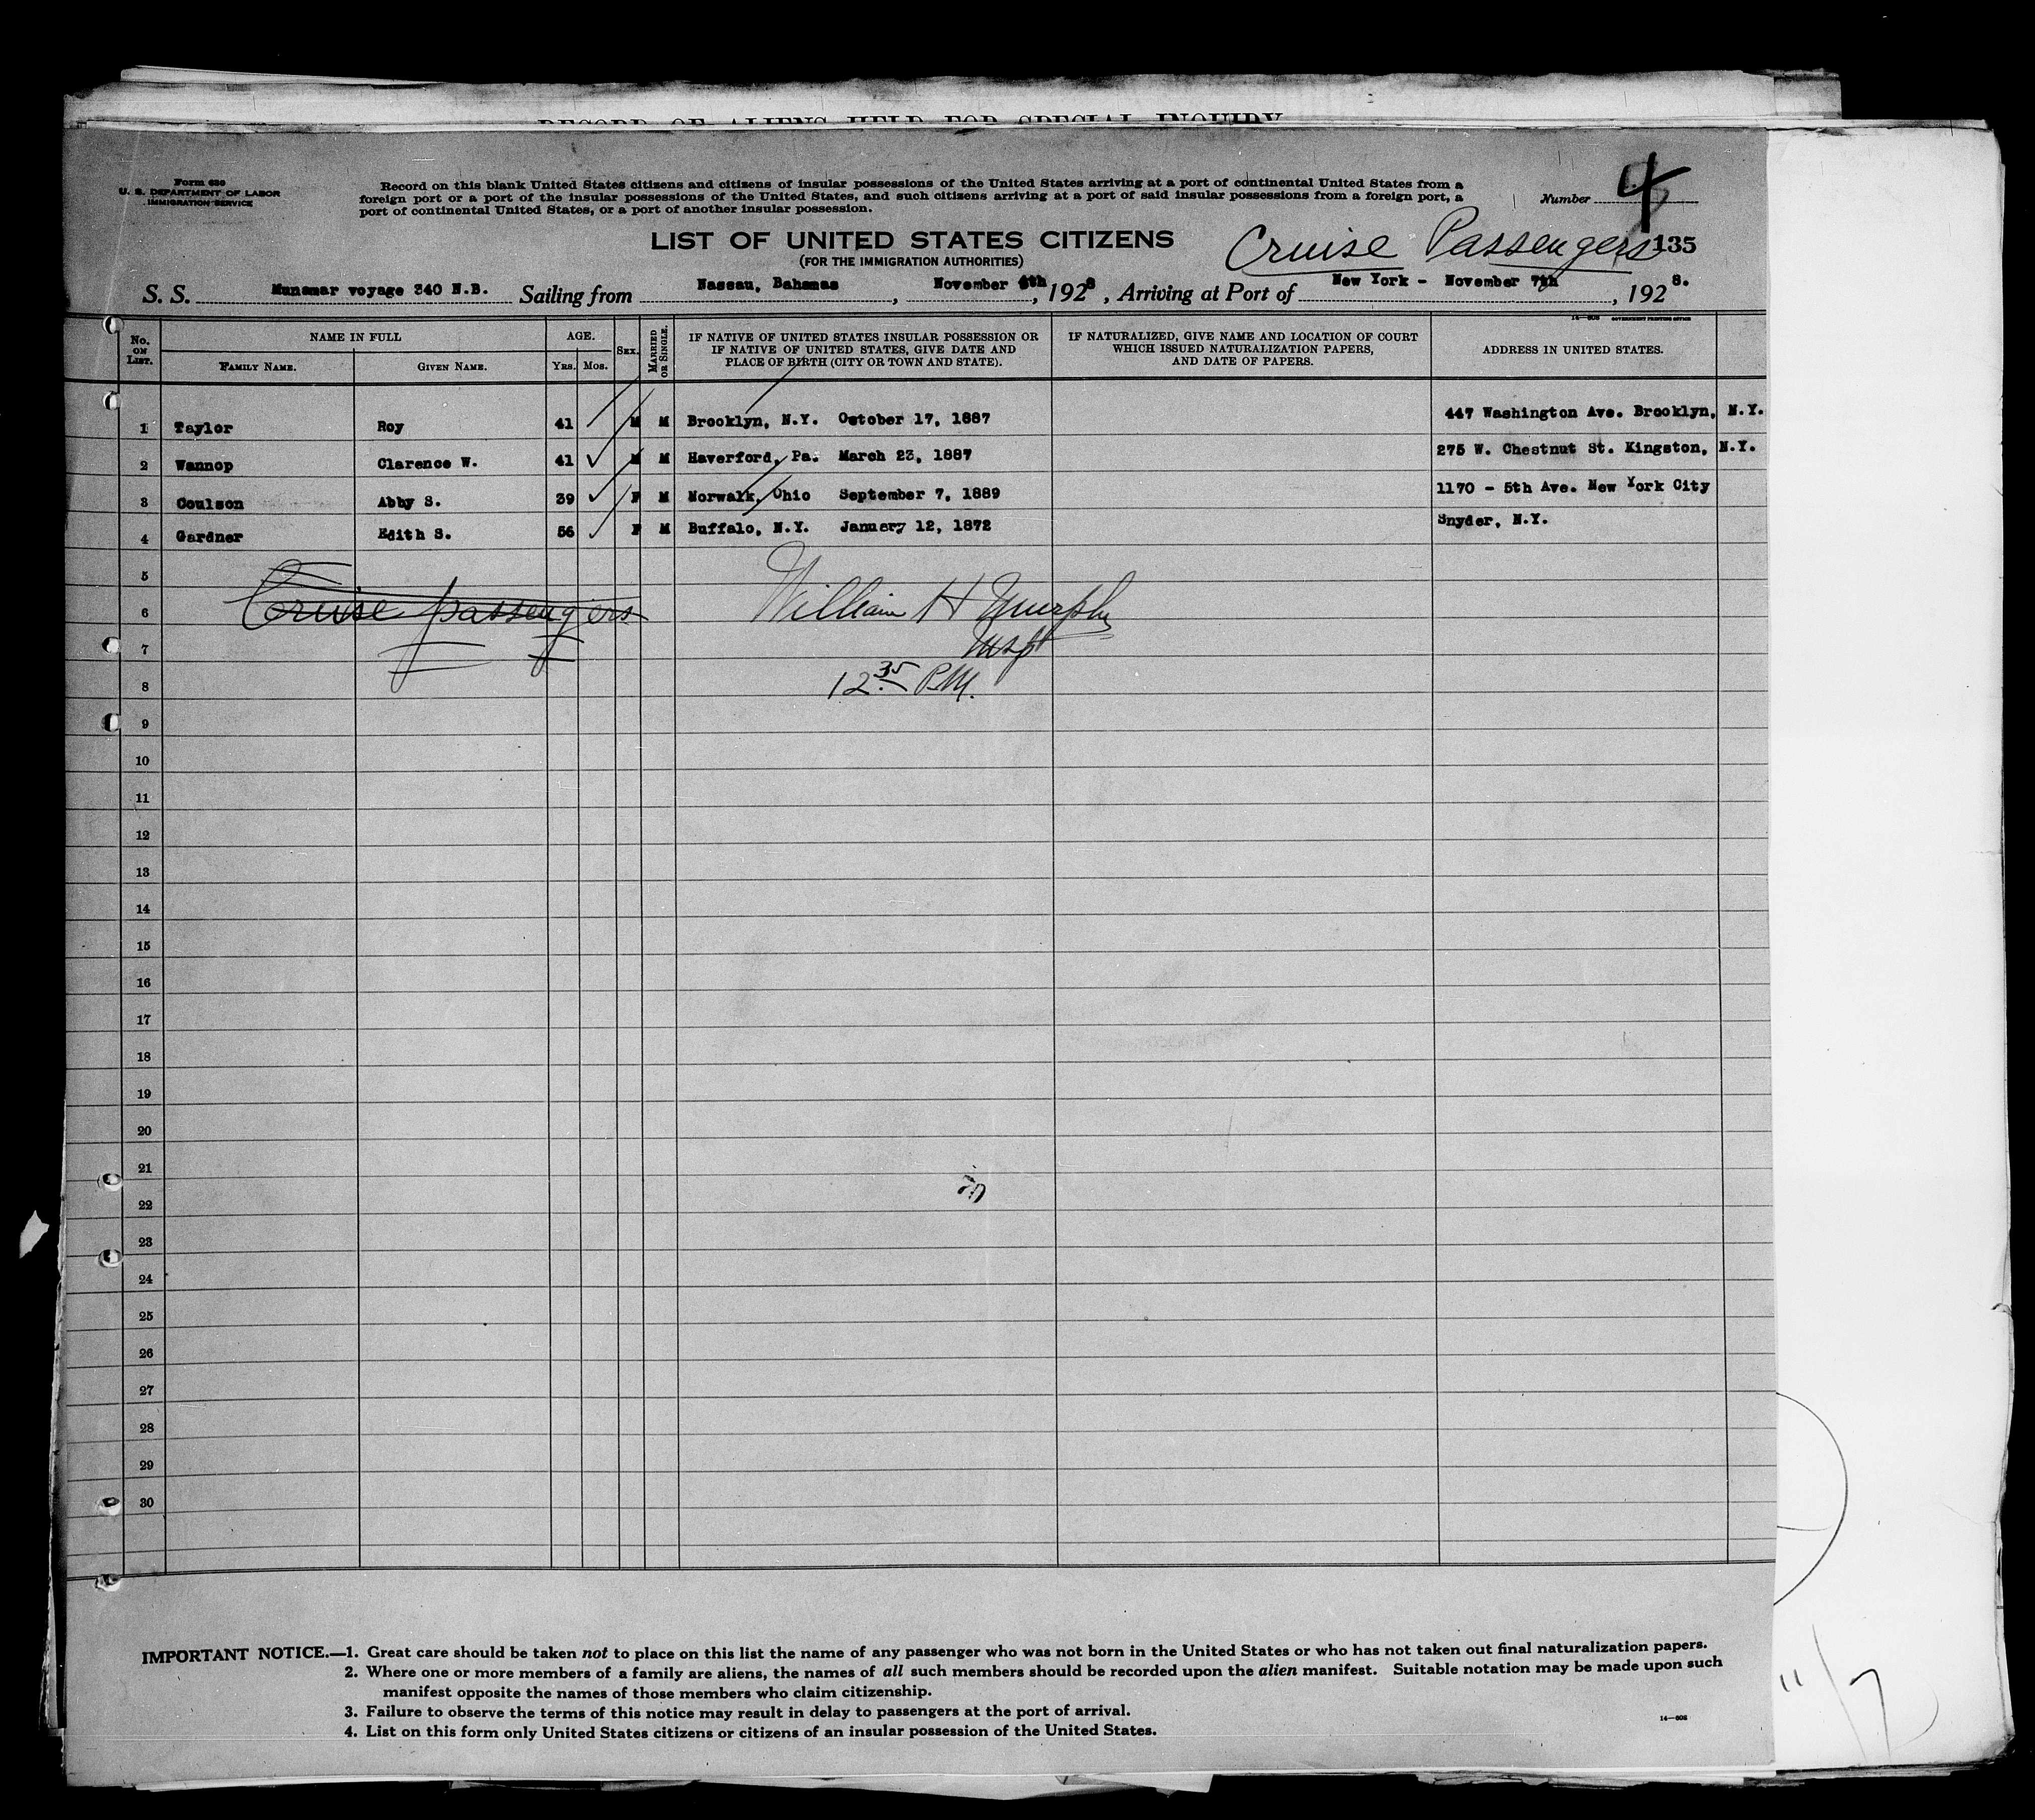 RECORD OF ALIENS HELD FOR SPECIAL INQUIRY
Form 630
U. S. DEPARTMENT OF LABOR
IMMIGRATION SERVICE
Record on this blank United States citizens and citizens of insular possessions of the United States arriving at a port of continental United States from a
foreign port or a port of the insular possessions of the United States, and such citizens arriving at a port of said insular possessions from a foreign port, a
port of continental United States, or a port of another insular possession.
Number 4
LIST OF UNITED STATES CITIZENS
(FOR THE IMMIGRATION AUTHORITIES)
Cruise Passengers 135
S. S. Munamar voyage 340 N.B. Sailing from Nassau, Bahamas, November 4th, 1928, Arriving at Port of New York - November 7th, 1928.
14—608 GOVERNMENT PRINTING OFFICE
No. ON LIST. NAME IN FULL FAMILY NAME. GIVEN NAME. AGE. YRS. MOS. SEX. MARRIED OR SINGLE. IF NATIVE OF UNITED STATES INSULAR POSSESSION OR IF NATIVE OF UNITED STATES, GIVE DATE AND PLACE OF BIRTH (CITY OR TOWN AND STATE). IF NATURALIZED, GIVE NAME AND LOCATION OF COURT WHICH ISSUED NATURALIZATION PAPERS, AND DATE OF PAPERS. ADDRESS IN UNITED STATES.
1 Taylor Roy 41 M M Brooklyn, N.Y. October 17, 1887 447 Washington Ave. Brooklyn, N.Y.
2 Wannop Clarence W. 41 ✓ M M Haverford, Pa. March 23, 1887 275 W. Chestnut St. Kingston, N.Y.
3 Coulson Abby S. 39 ✓ F M Norwalk, Ohio September 7, 1889 1170 - 5th Ave. New York City
4 Gardner Edith S. 56 ✓ F M Buffalo, N.Y. January 12, 1872 Snyder, N.Y.
5
6 Cruise passengers William H Murphy
7 Insp
8 12 35 P.M.
9
10
11
12
13
14
15
16
17
18
19
20
21
22
23
24
25
26
27
28
29
30
IMPORTANT NOTICE.—1. Great care should be taken not to place on this list the name of any passenger who was not born in the United States or who has not taken out final naturalization papers.
2. Where one or more members of a family are aliens, the names of all such members should be recorded upon the alien manifest. Suitable notation may be made upon such
manifest opposite the names of those members who claim citizenship.
3. Failure to observe the terms of this notice may result in delay to passengers at the port of arrival.
4. List on this form only United States citizens or citizens of an insular possession of the United States.
14—608
11/7